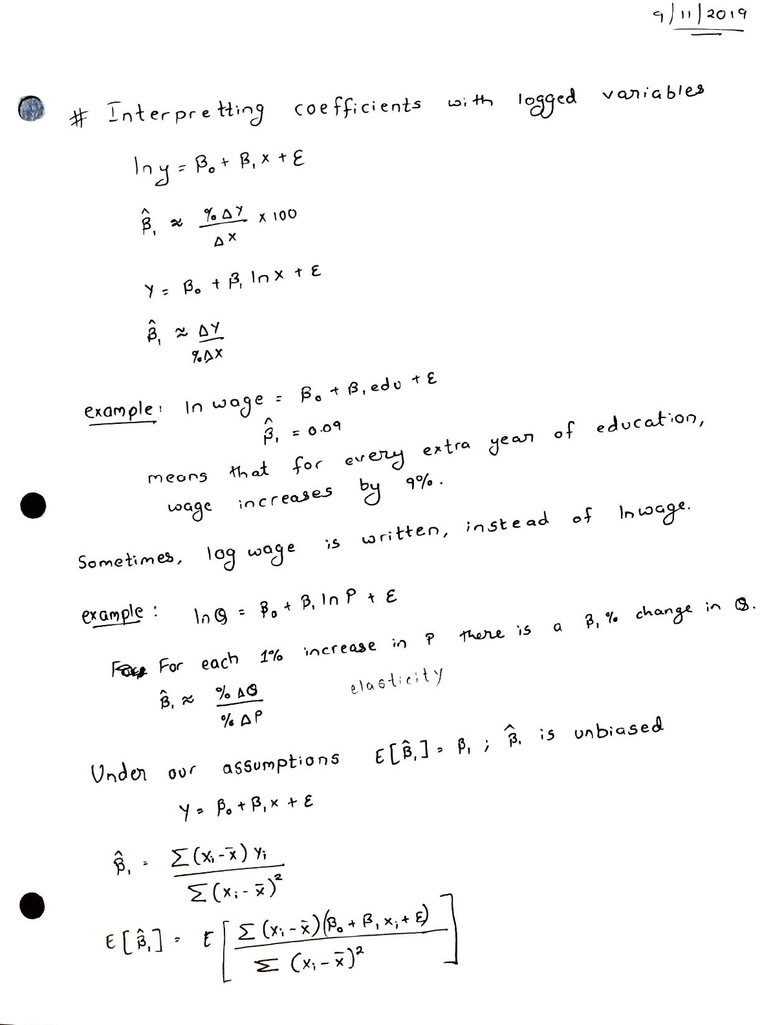 9/11/2019
# Interpretting coefficients with logged variables
ln y = β₀ + β₁ x + ε
β̂₁ ≈ %ΔY / ΔX × 100
Y = β₀ + β₁ ln X + ε
β̂₁ ≈ ΔY / %ΔX
example: ln wage = β₀ + β₁ edu + ε
β̂₁ = 0.09
means that for every extra year of education,
wage increases by 9%.
Sometimes, log wage is written, instead of lnwage.
example: ln Q = β₀ + β₁ ln P + ε
For each 1% increase in P there is a β₁ % change in Q.
β̂₁ ≈ %ΔQ / %ΔP elasticity
Under our assumptions E[β̂₁] = β₁ ; β̂₁ is unbiased
Y = β₀ + β₁ x + ε
β̂₁ = Σ(xᵢ - x̄) Yᵢ / Σ(xᵢ - x̄)²
E[β̂₁] = E[Σ(xᵢ - x̄)(β₀ + β₁ xᵢ + ε) / Σ(xᵢ - x̄)²]